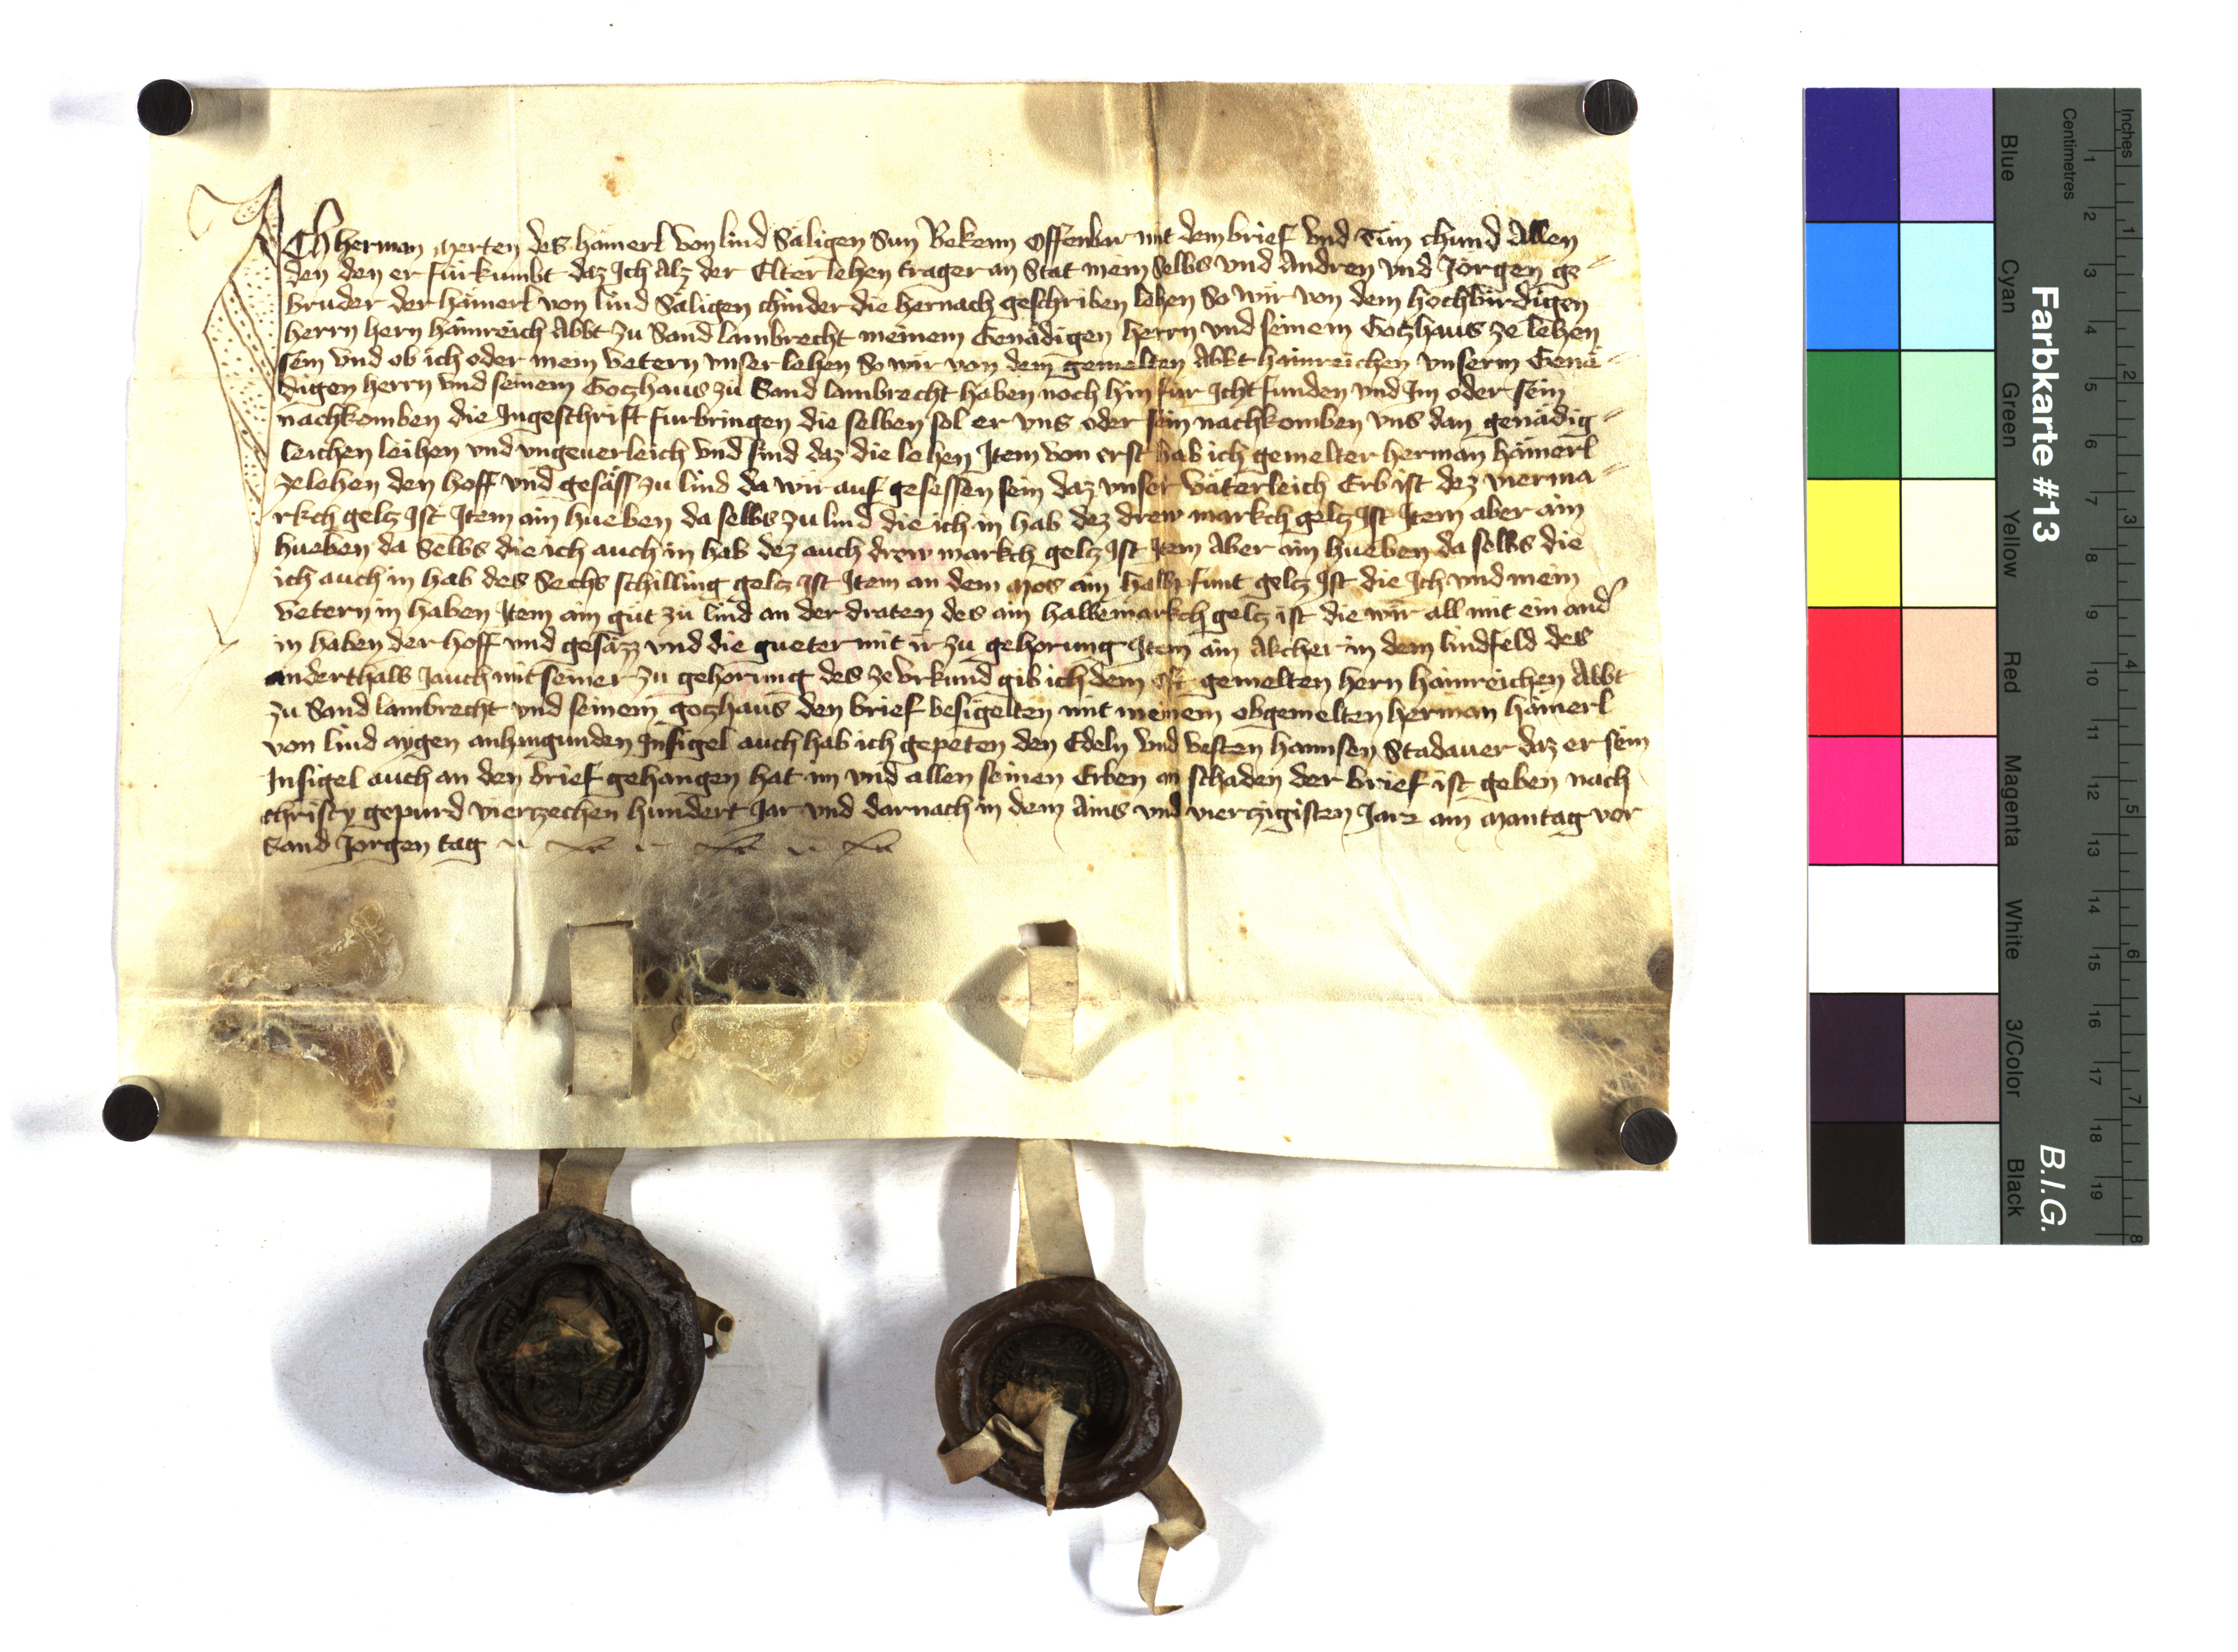 Ich herman merten des hämerl von lind Säligen Sun Bekenn Offenbar mit dem brief vnd Tün chund Allen
den den er fürkumbt daz Ich Alz der Elter lehen trager an Stat mein selbs vnd Andren vnd Jörgen ge⸗
bruder der hämerl von lind Säligen chinder die hernach geschriben lehen So wir von dem hochbirdigen
herrn hern hainreich Abbt zu Sand lambrecht meinem Genädigen herrn vnd seinem Gotzhaus ze lehen
sein vnd ob ich oder mein vetern vnser lehen So wir von dem gemelten Abbt hainreichen vnserm Genä⸗
digen herrn vnd seinem Gotzhaus zu Sand lambrecht haben noch hin für Icht funden vnd Im oder sein
nachkomben die Ingeschrift furbringen die selben sol er vns oder sein nachkomben vns dan genädig⸗
leichen leihen vnd vngeuerleich vnd sind daz die lehen Item von erst hab ich gemelter herman hämerl
zelehen den hoff vnd gesäss zu lind da wir auf gesessen sein daz vnser väterleich Erb ist dez vierma⸗
rkch geltz Ist Item ain hueben da selbs zu lind die ich in hab dez drew markch geltz Ist Item aber ain
hueben da Selbs die ich auch in hab dez auch drew markch geltz Ist Item Aber ain hueben da selbs die
ich auch in hab des Sechs schilling geltz Ist Item an dem mos ain halb pfunt geltz Ist die Ich vnd mein
vetern in haben Item ain güt zu lind an der draten des ain halbe markch geltz ist die wir all mit ein and
in haben der hoff vnd gesäzz vnd die gueter mit ir zu gehorung Item ain Akcher in dem lindfeld des
anderthalb Jauch mit seiner zu gehorung des ze vrkund gib ich dem oft gemelten hern hainreichen Abbt
zu Sand lambrecht vnd seinem gotzhaus den brief besigelten mit meinem obgemelten herman hämerl
von lind aygen anhingunden Insigel auch hab ich gepeten den Edeln vnd vesten hannsen Stadauer daz er sein
Insigel auch an den brief gehangen hat im vnd allen seinen Erben an schaden der brief ist geben nach
christy gepurd vierzechen hundert Jar vnd darnach in dem Ains vnd vierzigisten Jare am Mantag vor
Sand Jorgen tag
Farbkarte #13
B.I.G.
Inches 1 2 3 4 5 6 7 8
Centimetres 1 2 3 4 5 6 7 8 9 10 11 12 13 14 15 16 17 18 19
Blue Cyan Green Yellow Red Magenta White 3/Color Black